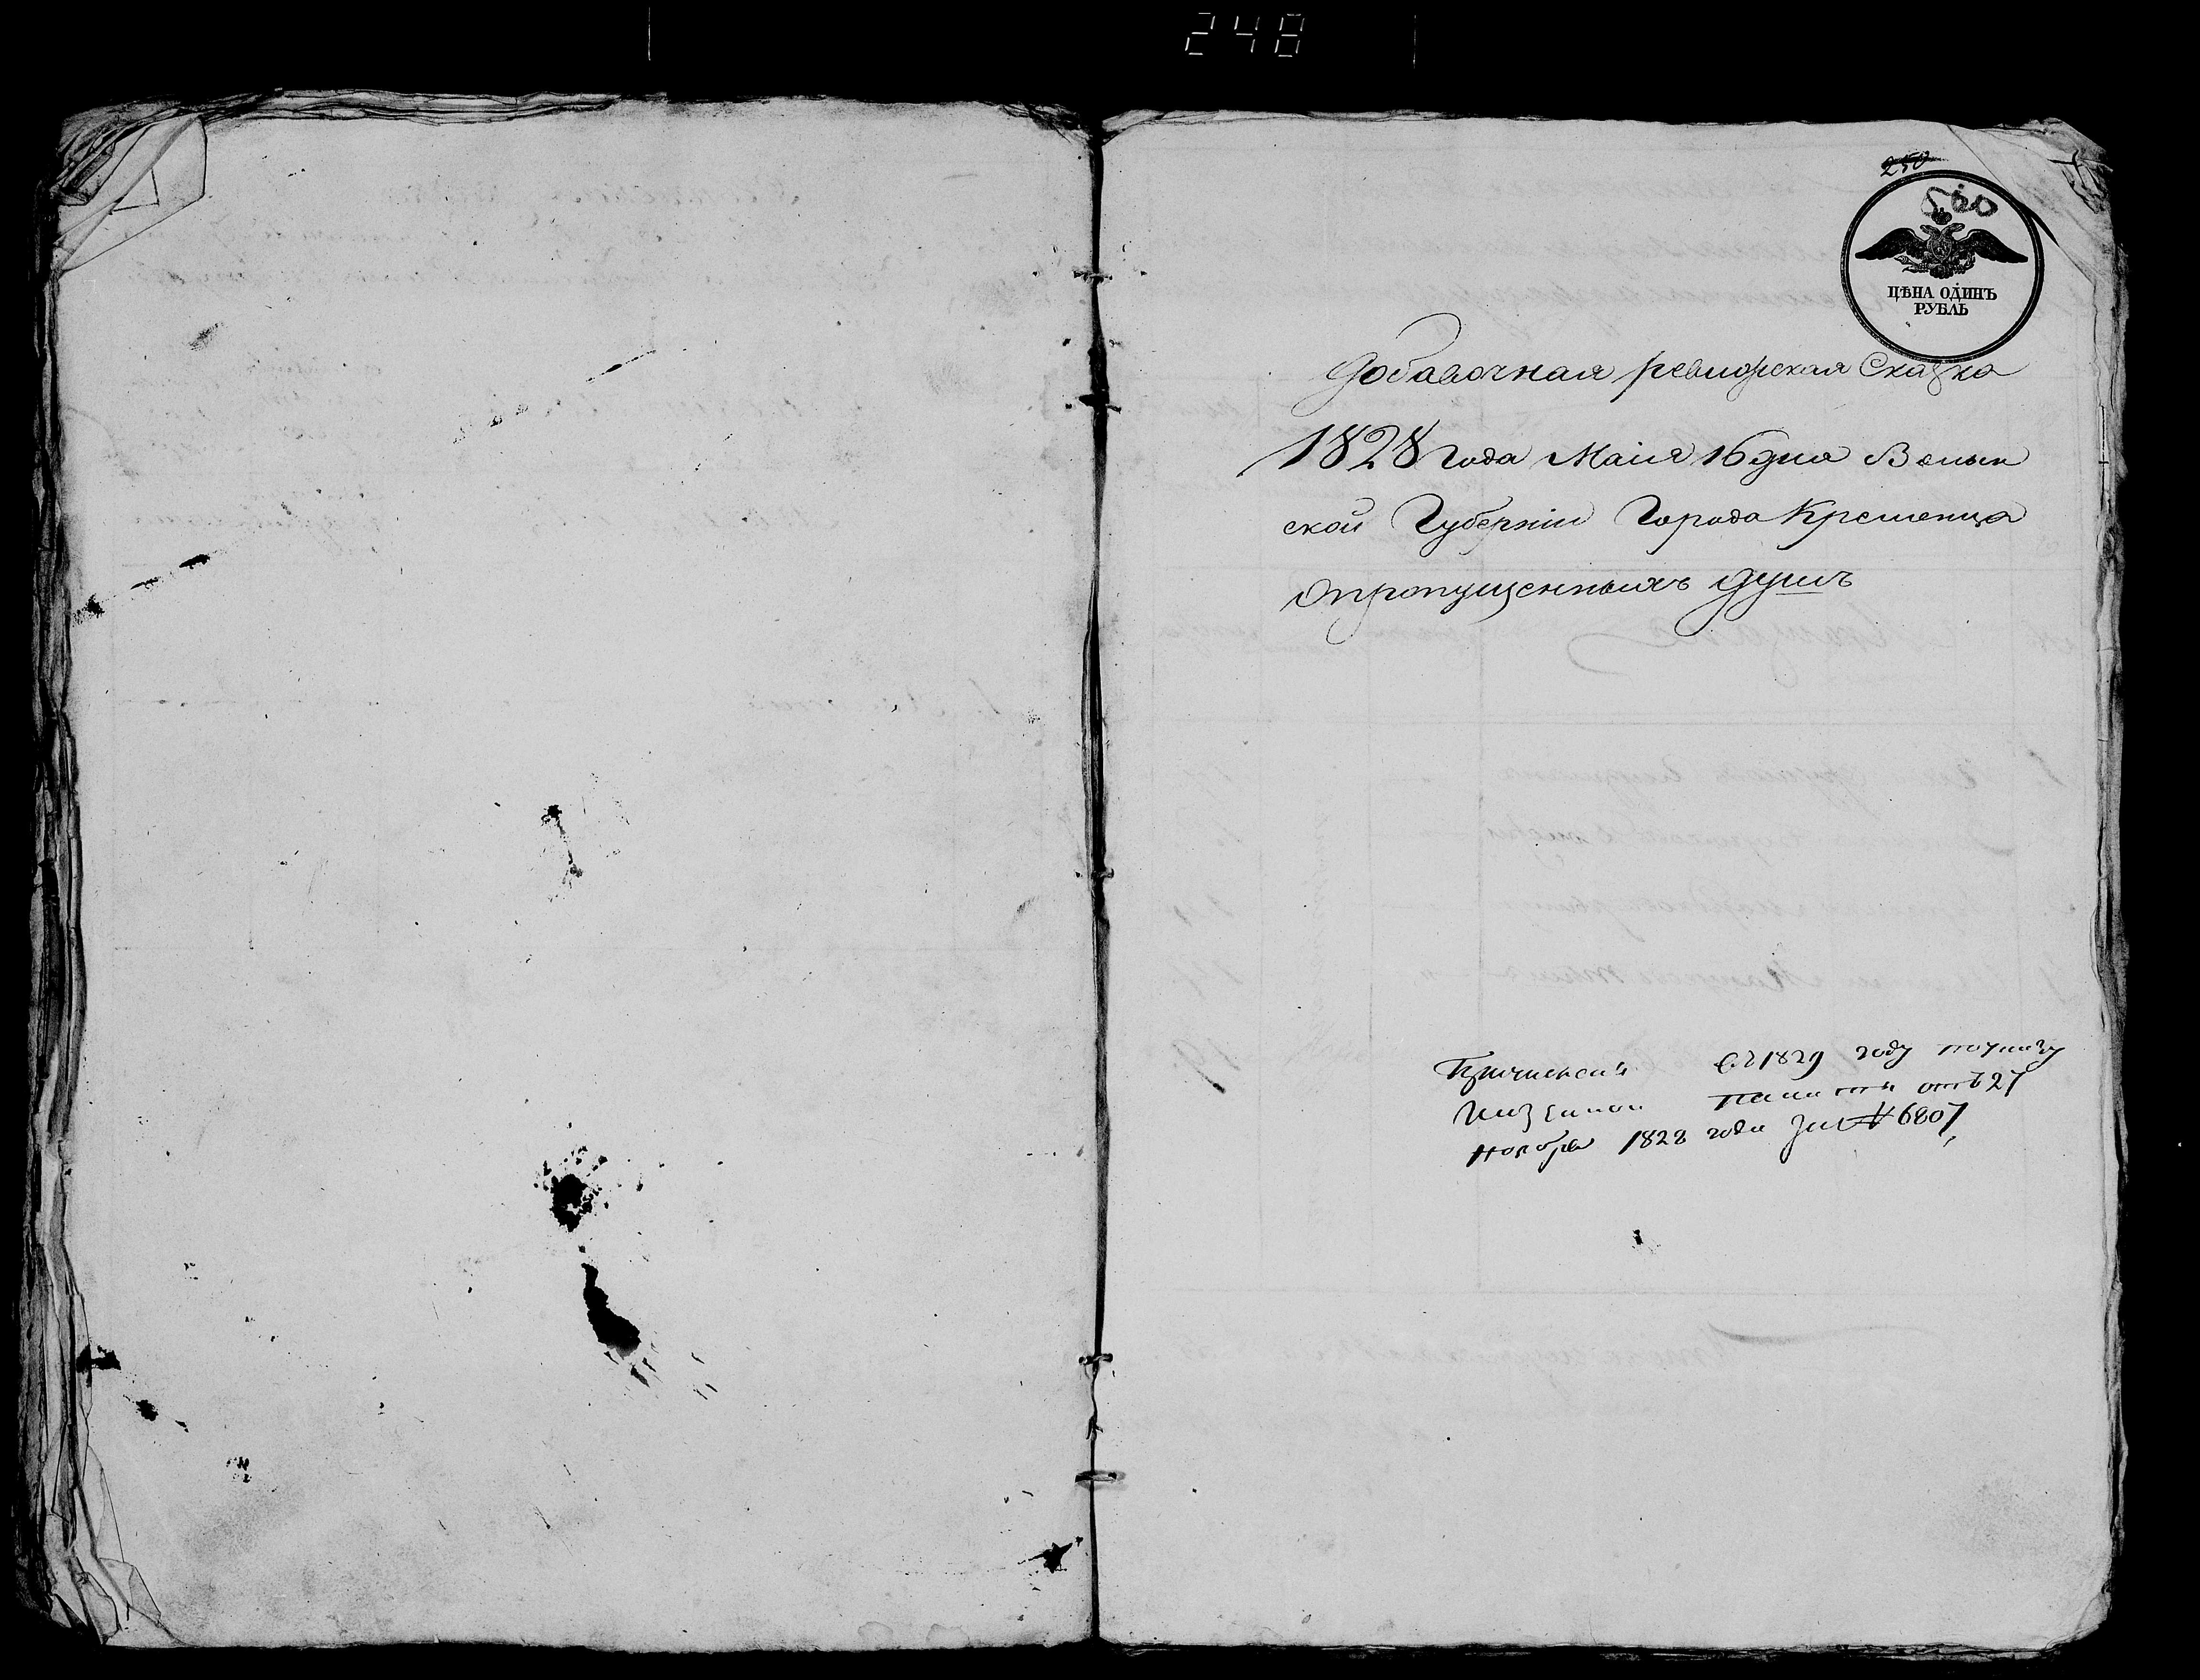 248
250
500
ЦѢНА ОДИНЪ
РУБЛЬ
Добавочная ревизская Сказка
1828 Года Маія 16 дня Волын
ской Губерніи Города Кременца
опропущенныхъ душъ
съ 1829 году по указу
Казенной палаты отъ 27
ноября 1828 года за № 6807